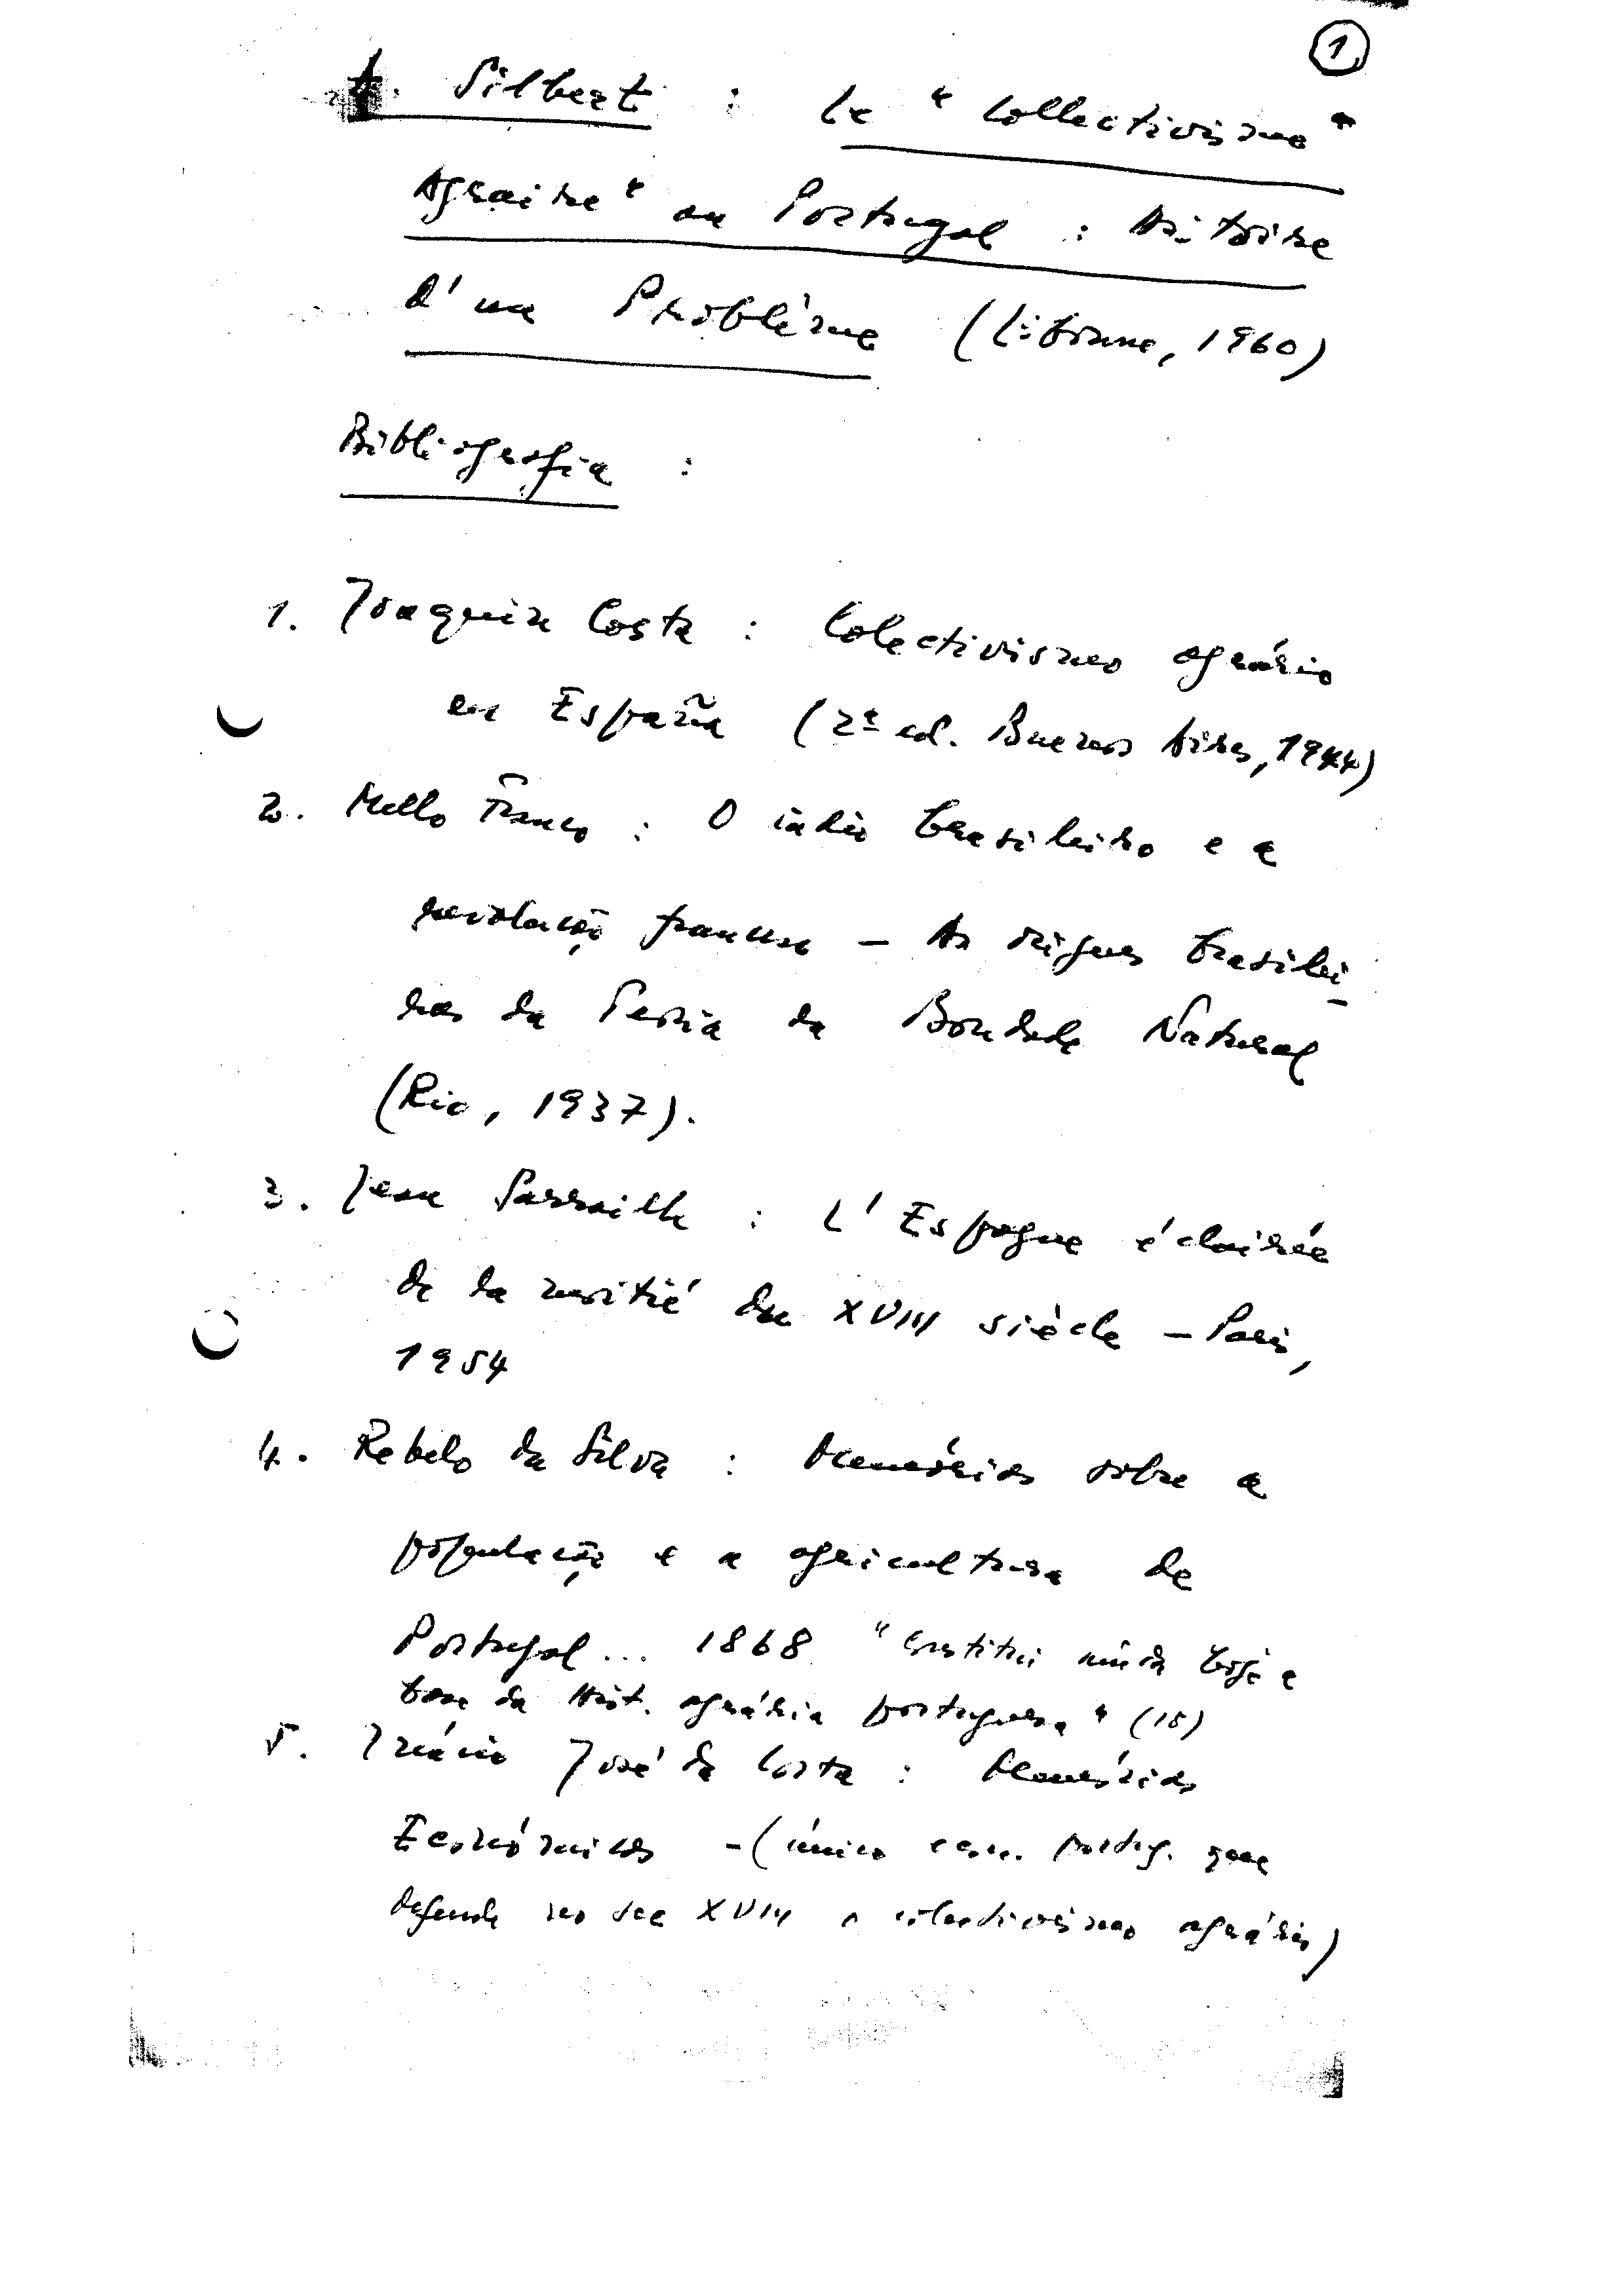 1
A. Silbert : Le "Collectivisme"
Agraire" au Portugal : Histoire
d'un Problème (Lisbonne, 1960)
Bibliografia :
1. Joaquin Costa : Colectivismo agrário
en España (2ª ed. Buenos Aires, 1944)
2. Mello Franco : O indio brasileiro e a
revolução francesa – As origens brasilei-
ras da Teoria da Bondade Natural
(Rio, 1937).
3. Jean Sarrailh : L'Espagne éclairée
de la moitié du XVIII siècle – Paris,
1954
4. Rebelo da Silva : Memórias sobre a
população e a agricultura de
Portugal... 1868 "constitui ainda hoje a
base da Hist. agrária portuguesa" (15)
5. Inácio José da Costa : Memórias
Económicas – (único econ. portug. que
defende no sec XVIII o colectivismo agrário)